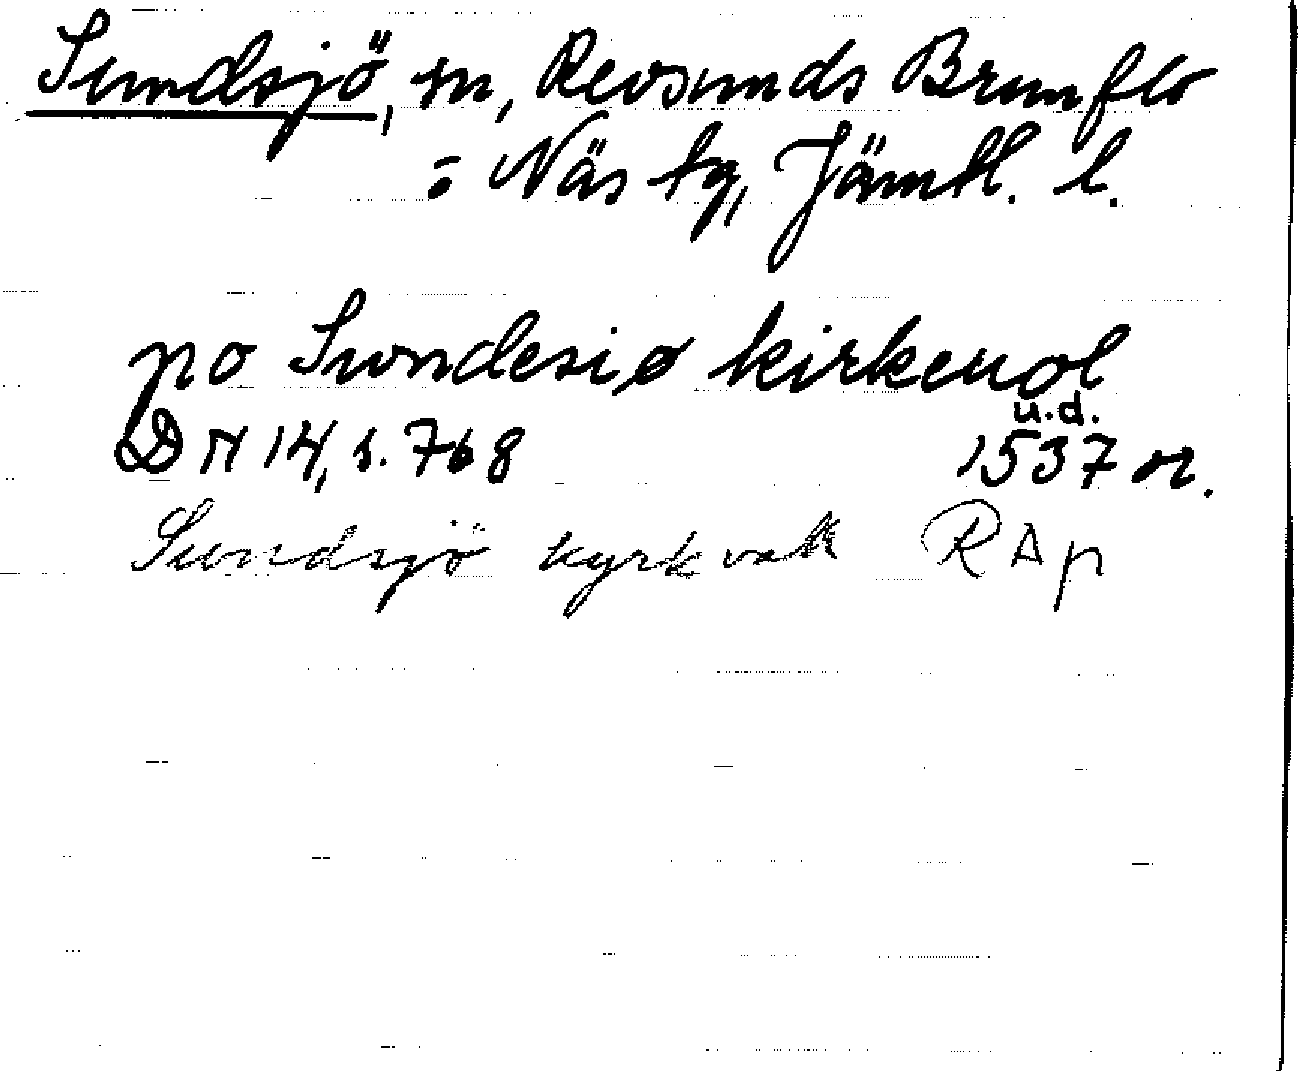 Sundsjö, sn, Revsunds Brunflo
o Näs tg, Jämtl. l.
po Swndesiø kirkeuol
u.d.
DN 14, s. 768 1537 or.
Sundsjö kyrkvall RAp